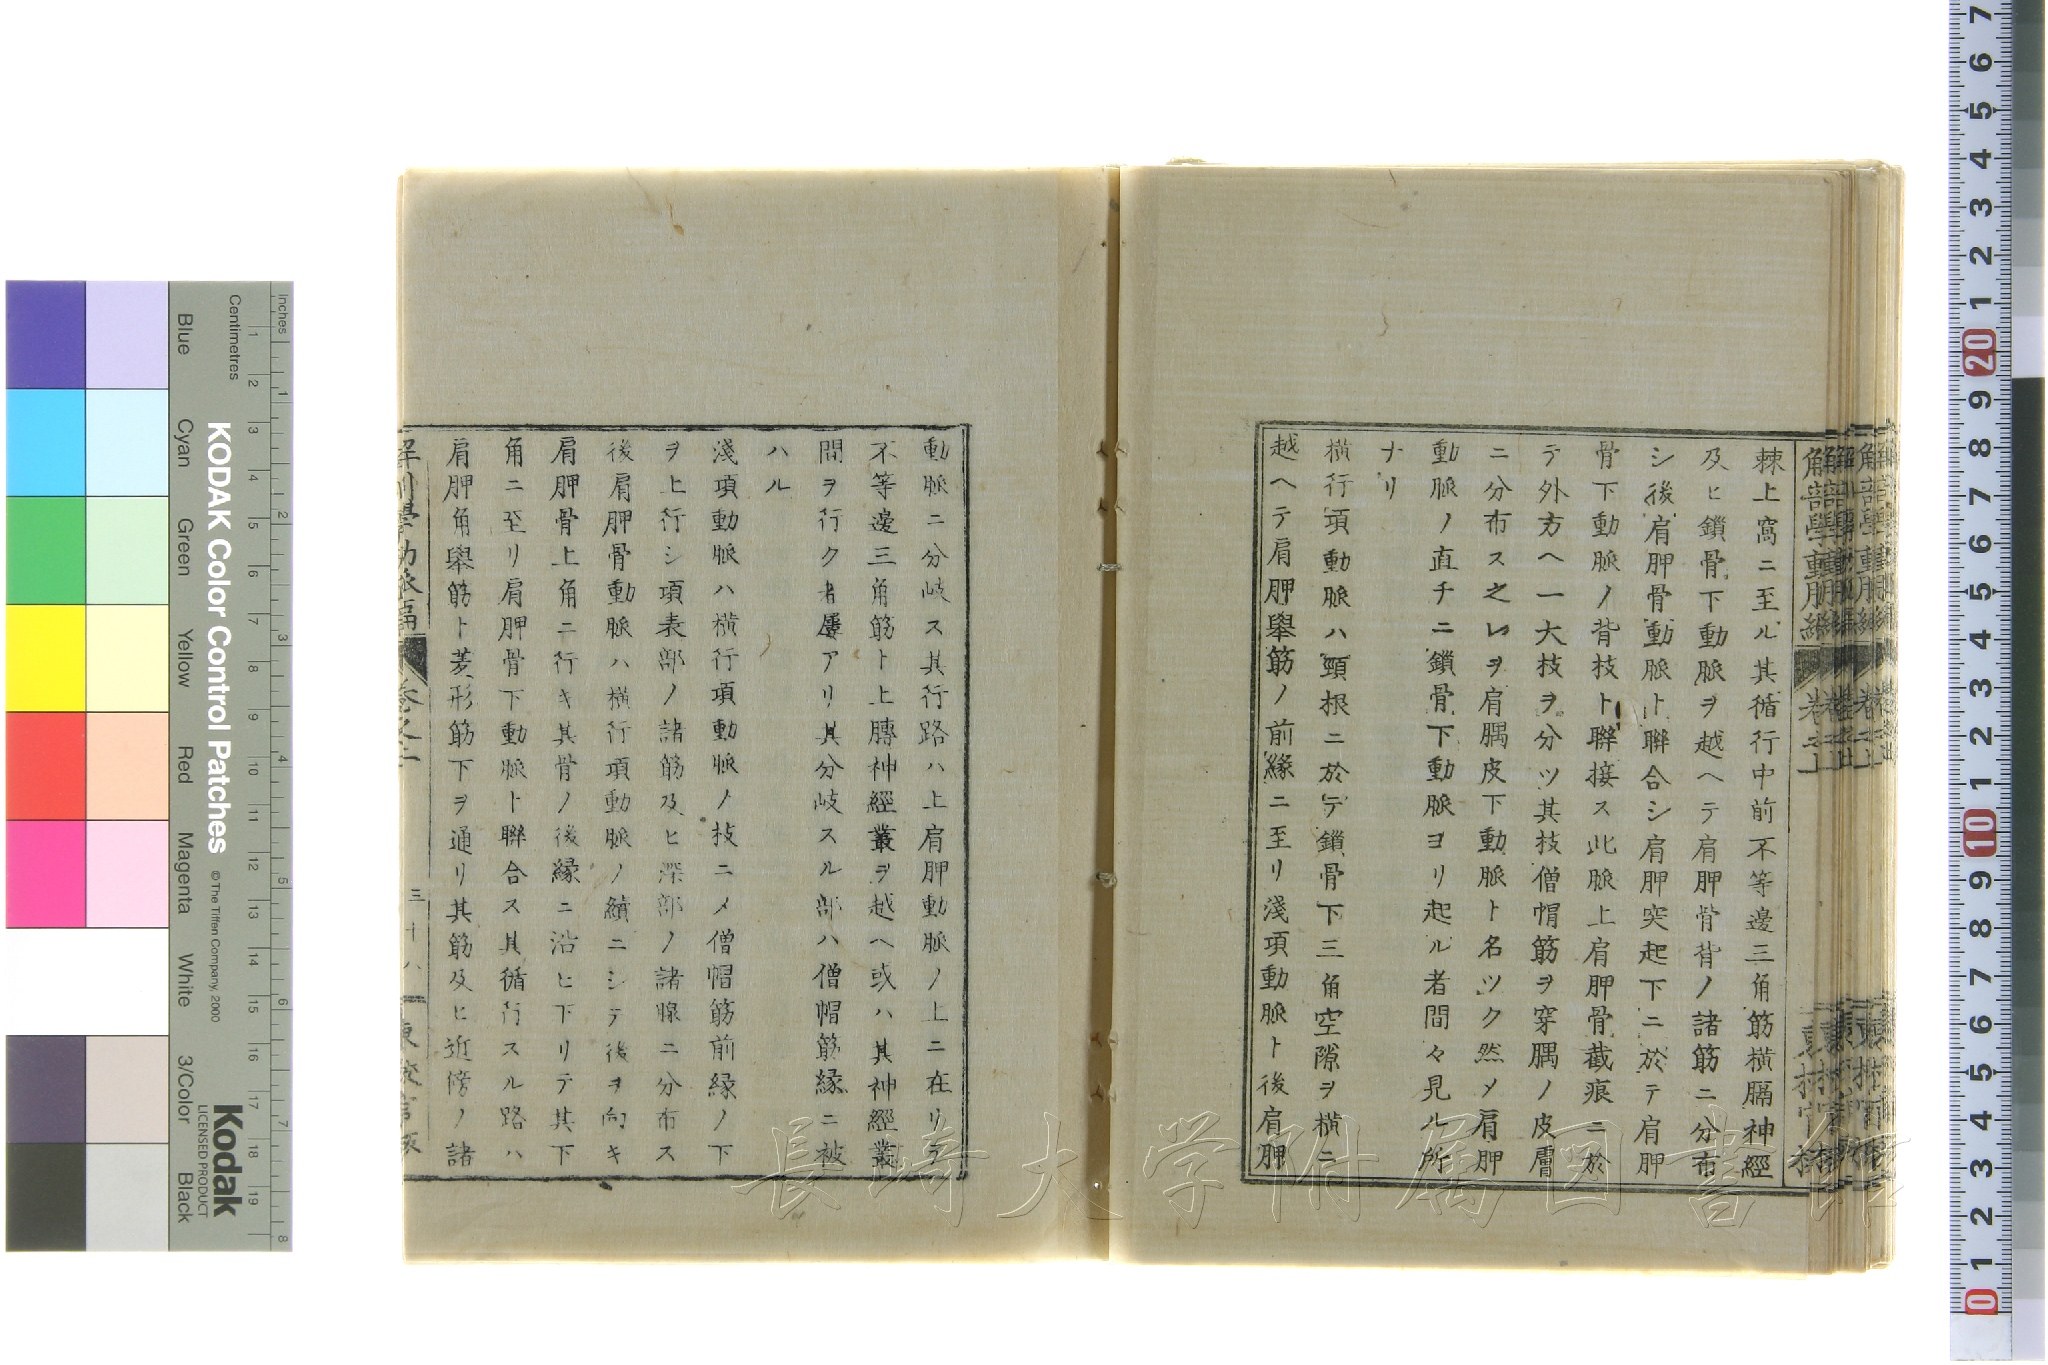 棘上窩ニ至ル其循行中前不等邊三角筋橫膈神經
及ヒ鎖骨下動脈ヲ越ヘテ肩胛骨背ノ諸筋ニ分布
シ後肩胛骨動脈ト聯合シ肩胛突起下ニ於テ肩胛
骨下動脈ノ背技ト聯接ス此脈上肩胛骨截痕ニ於
テ外方ヘ一大技ヲ分ツ其技僧帽筋ヲ穿髃ノ皮膚
ニ分布ス之レヲ肩髃皮下動脈ト名ツク然メ肩胛
動脈ノ直チニ鎖骨下動脈ヨリ起ル者間々見ル所
ナリ
橫行項動脈ハ頸根ニ於テ鎖骨下三角空隙ヲ橫ニ
越ヘテ肩胛舉筋ノ前緣ニ至リ淺項動脈ト後肩胛
動脈ニ分岐ス其行路ハ上肩胛動脈ノ上ニ在リテ
不等邊三角筋ト上膊神經叢ヲ越ヘ或ハ其神經叢
間ヲ行ク者屢アリ其分岐スル部ハ僧帽筋緣ニ被
ハル
淺項動脈ハ橫行項動脈ノ技ニメ僧帽筋前緣ノ下
ヲ上行シ項表部ノ諸筋及ヒ深部ノ諸腺ニ分布ス
後肩胛骨動脈ハ橫行項動脈ノ續ニシテ後ヲ向キ
肩胛骨上角ニ行キ其骨ノ後緣ニ沿ヒ下リテ其下
角ニ至リ肩胛骨下動脈ト聯合ス其循行スル路ハ
肩胛角舉筋ト菱形筋下ヲ通リ其筋及ヒ近傍ノ諸
三十八
長崎大学附属図書館
KODAK Color Control Patches
© The Tiffen Company, 2000
Kodak
LICENSED PRODUCT
Inches
Centimetres
Blue
Cyan
Green
Yellow
Red
Magenta
White
3/Color
Black